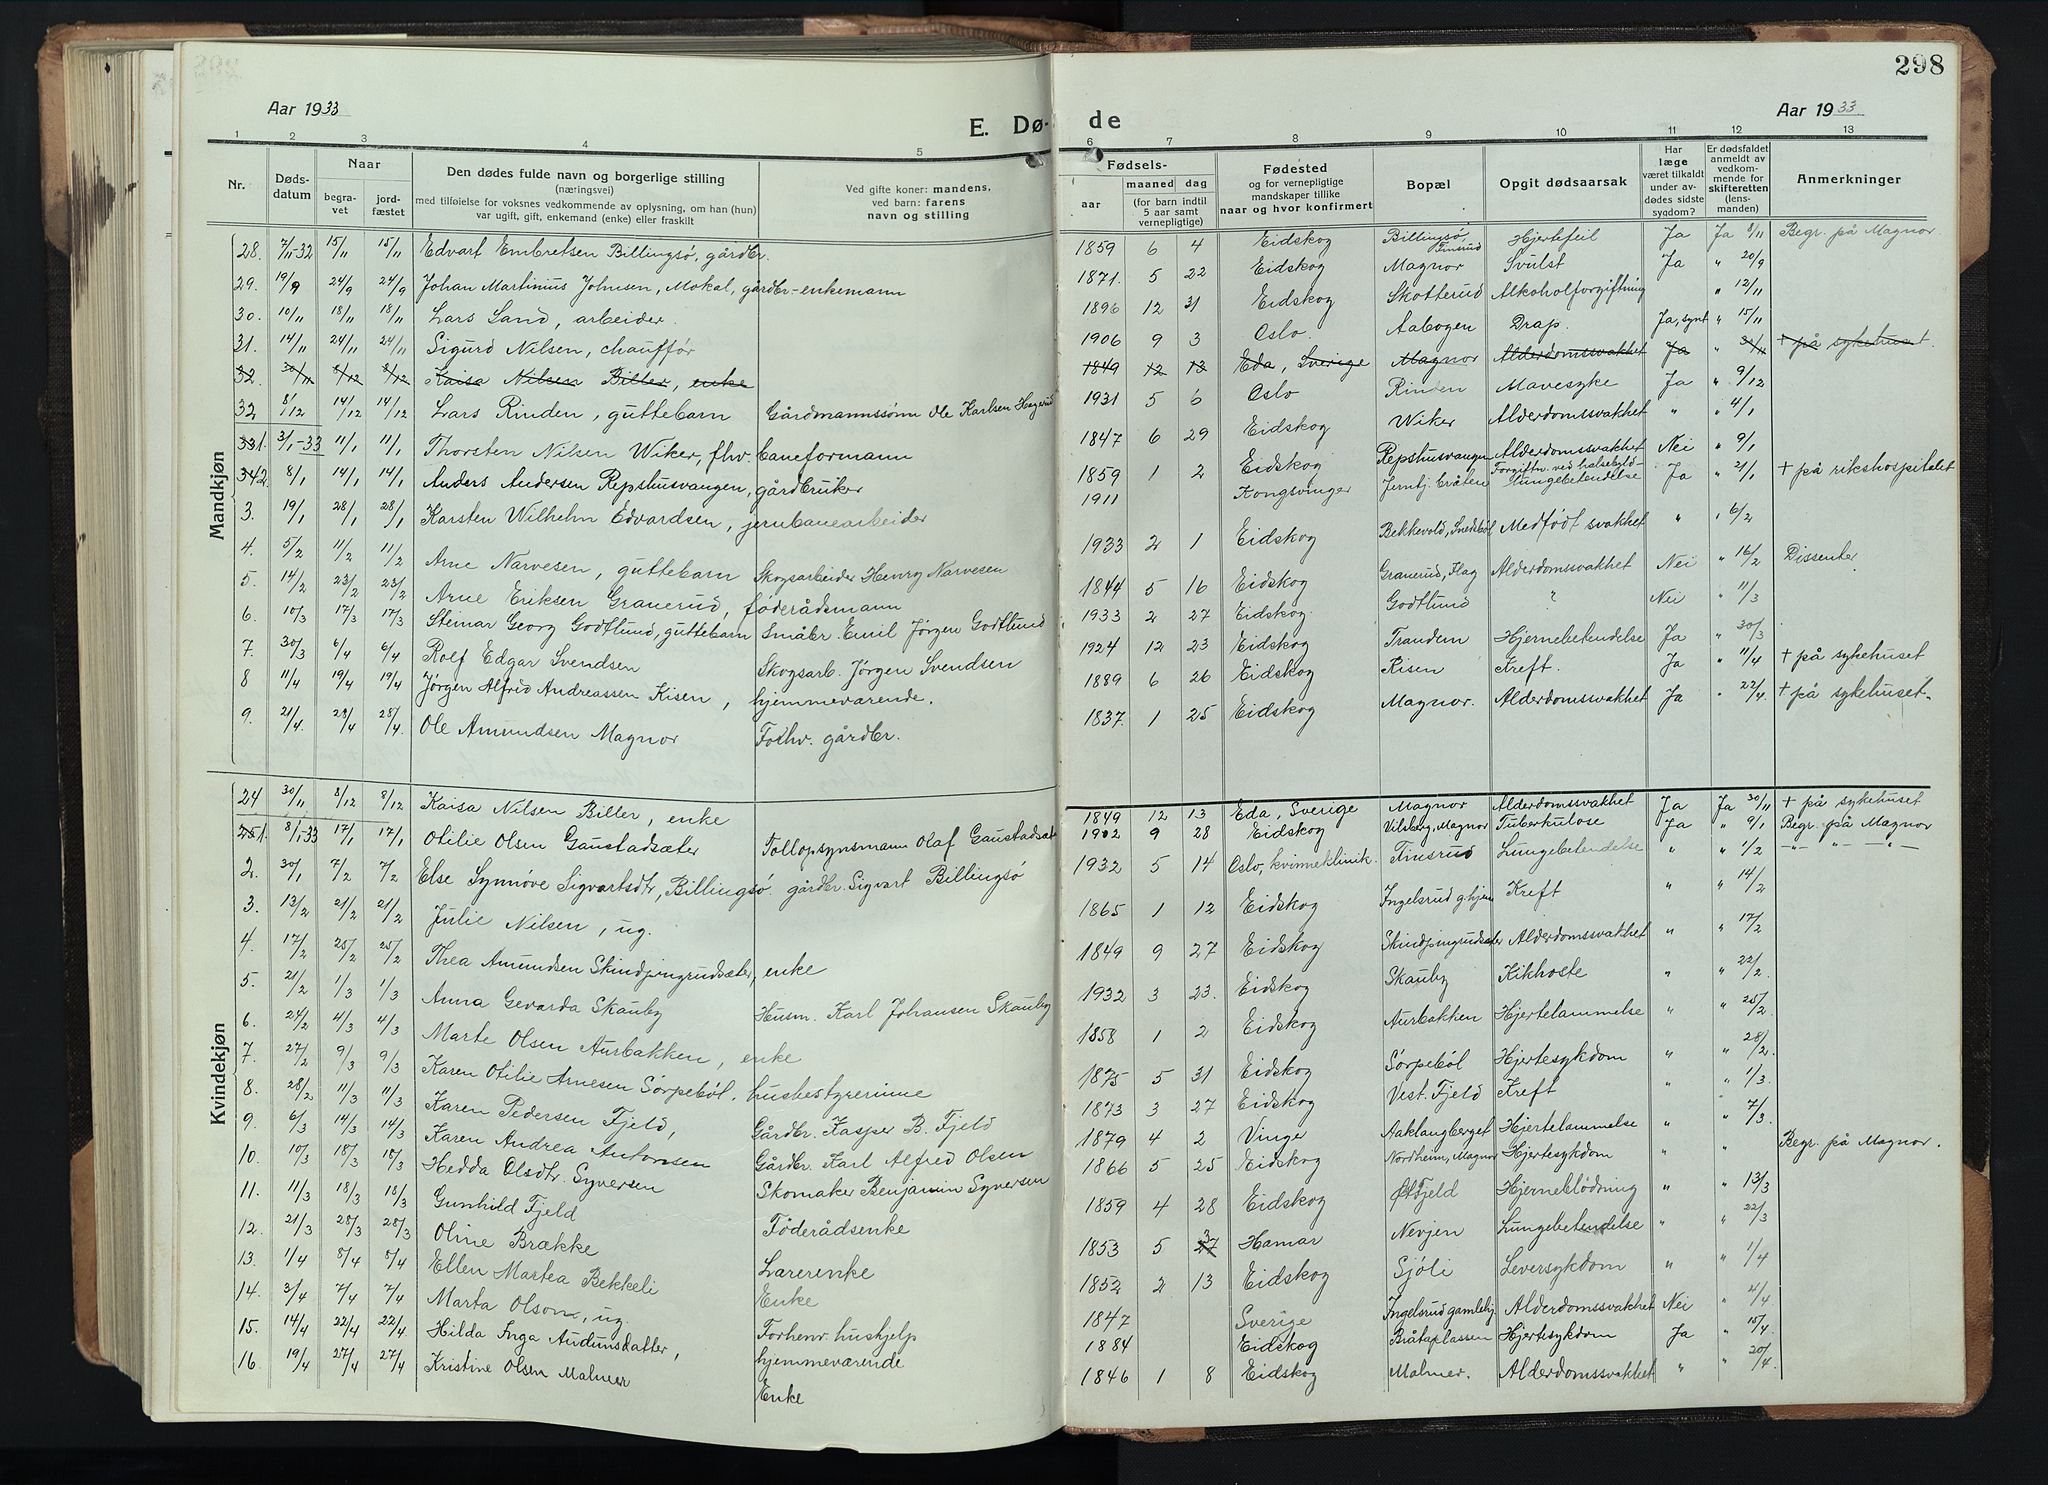 298
Aar 1933
E. Dø-
de
Aar 1933
1 2 3 4 5 6 7 8 9 10 11 12 13
Nr.
Døds-
datum
Naar
begra-
vet
jord-
fæstet
Den dødes fulde navn og borgerlige stilling
(næringsvei)
med tilføielse for voksnes vedkommende av oplysning, om han (hun)
var ugift, gift, enkemand (enke) eller fraskilt
Ved gifte koner: mandens,
ved barn: farens
navn og stilling
Fødsels-
aar
maaned dag
(for barn indtil
5 aar samt
vernepligtige)
Fødested
og for vernepligtige
mandskaper tillike
naar og hvor konfirmert
Bopæl
Opgit dødsaarsak
Har
læge
været tilkaldt
under av-
dødes sidste
sygdom?
Er dødsfaldet
anmeldt av
vedkom-
mende for
skifteretten
(lens-
manden)
Anmerkninger
Mandkjøn
28. 7/11-32 15/11 15/11 Edvart Embretsen Billingsø, gårdbr. 1859 6 4 Eidskog Billingsø, Finsrud Hjertefeil Ja Ja 8/11 Begr. på Magnor.
29. 19/9 24/9 24/9 Johan Martinius Johnsen, Mokal, gårdbr-enkemann 1871. 5 22 Eidskog Magnor Svulst Ja " 20/9
30. 10/11 18/11 18/11 Lars Sand, arbeider. 1896 12 31 Eidskog Skotterud Alkoholforgiftning " 12/11
31. 14/11 24/11 24/11 Sigurd Nilsen, chauffør 1906 9 3 Oslo. Aabogen Drap. Ja, synt " 15/11
32. 30/11 8/12 8/12 Kaisa Nilsen Biller, enke 1849 12 13 Eda, Sverige Magnor Alderdomssvakhet Ja " 30/11 + på sykehuset.
32 8/12 14/12 14/12 Lars Rinden, guttebarn Gårdmannssønn Ole Karlsen Hagerud 1931 5 6 Oslo Rinden Mavesyke Ja " 9/12
33 1. 3/1-33 11/1 11/1 Thorsten Nilsen Wiker, fhv. baneformann 1847 6 29 Eidskog Wiker Alderdomssvakhet " " 4/1
34 2. 8/1 14/1 14/1 Anders Andersen Repshusvangen, gårdbruker 1859 1 2 Eidskog Repshusvangen Alderdomssvakhet Nei " 9/1
3. 19/1 28/1 28/1 Karsten Wilhelm Edvardsen, jernbanearbeider 1911 Kongsvinger Jernbj. bråten Forgiftn. ved halsebyld- Lungebetendelse Ja " 21/1 + på rikshospitalet
4. 5/2 11/2 11/2 Arne Narvesen, guttebarn Skogsarbeider Henry Narvesen 1933 2 1 Eidskog Bekkevold, Medfødt svakhet " " 6/2
5. 14/2 23/2 23/2 Arne Eriksen Granerud, føderådsmann 1844 5 16 Eidskog Granerud, Flag Alderdomssvakhet Nei " 16/2 Dissenter
6. 10/3 17/3 17/3 Steinar Georg Godtlund, guttebarn Småbr. Emil Jørgen Godtlund 1933 2 27 Eidskog. Godtlund ? Nei " 11/3
7. 30/3 6/4 6/4 Rolf Edgar Svendsen Skogsarb. Jørgen Svendsen 1924 12 23 Eidskog Trandem Hjernebetendelse Ja " 30/3
8 11/4 19/4 19/4 Jørgen Alfred Andreassen Kisen, hjemmeværende. 1889 6 26 Eidskog Kisen Kreft. Ja " 11/4 + på sykehuset
9. 21/4. 28/4 28/4. Ole Amundsen Magnor Forhv. gårdbr. 1837. 1 25 Eidskog Magnor. Alderdomssvakhet Ja " 22/4. + på sykehuset.
Kvindekjøn
24 30/11 8/12 8/12 Kaisa Nilsen Biller, enke 1849 12 13 Eda, Sverige Magnor Alderdomssvakhet Ja Ja 30/11 + på sykehuset
25 1. 8/1-33 17/1 17/1 Otilie Olsen Gaustadsæter Tollopsynsmann Olaf Gaustadsæt 1902 9 28 Eidskog Vilsberg, Magnor Tuberkulose Ja " 9/1 Begr. på Magnor
2. 30/1 7/2 7/2 Else Synnøve Sigvartsdtr, Billingsø gårdbr. Sigvart Billingsø 1932 5 14 Oslo, kvinneklinik. Finsrud Lungebetendelse " " 1/2 -"- " -"-
3. 13/2 21/2 21/2 Julie Nilsen, ug. 1865 1 12 Eidskog Ingelsrud g.hjem Kreft " " 14/2
4. 17/2 25/2 25/2 Thea Amundsen Skindpungrudsæter, enke 1849 9 27 Eidskog Skindpungrudsæter Alderdomssvakhet " " 17/2
5. 21/2 1/3 1/3 Anna Gevarda Skauby Husm. Karl Johansen Skauby 1932 3 23. Eidskog Skauby Kikhoste " " 22/2
6. 24/2 4/3 4/3 Marte Olsen Aurbakken, enke 1858 1 2 Eidskog Aurbakken Hjertelammelse " " 25/2
7. 27/2 9/3 9/3 Karen Otilie Arnesen Sørpebøl. husbestyrerinne 1875 5 31 Eidskog Sørpebøl Hjertesykdom " " 28/2.
8. 28/2 11/3 11/3 Karen Pedersen Fjeld, Gårdbr. Kasper B. Fjeld 1873 3 27 Eidskog Vest. Fjeld Kreft " " 1/3
9. 6/3 14/3 14/3 Karen Andrea Antonsen Gårdbr. Karl Alfred Olsen 1879 4 2 Vinger Aaklangberget Hjertelammelse " " 7/3.
10. 10/3 18/3 18/3 Hedda Olsdtr. Syversen Skomaker Benjamin Syversen 1866 5 25 Eidskog Nordheim, Magnor Hjertesykdom " " Begr. på Magnor.
11. 11/3 18/3 18/3 Gunhild Fjeld Føderådsenke 1859 4 28 Eidskog Øst.Fjeld Hjerneblødning " " 13/3
12. 21/3 28/3 28/3 Oline Brække Lærerenke 1853 5 27 3 Hamar Nevjen Lungebetendelse " " 22/3
13. 1/4 8/4 8/4 Ellen Martea Bekkeli Enke 1852 2 13 Eidskog Sjøli Leversykdom " " 1/4
14. 3/4 7/4 7/4 Marta Olson, ug. Forhenv. hushjelp 1847 Sverige Ingelsrud gamlehj. Alderdomssvakhet Nei " 4/4
15. 14/4 22/4 22/4 Hilda Inga Audunsdatter, hjemmeværende 1884 Eidskog Bråtaplassen Hjertesykdom Ja " 15/4
16. 19/4 27/4 27/4 Kristine Olsen Malmer Enke 1846 1 8 Eidskog Malmer. Alderdomssvakhet " " 20/4.